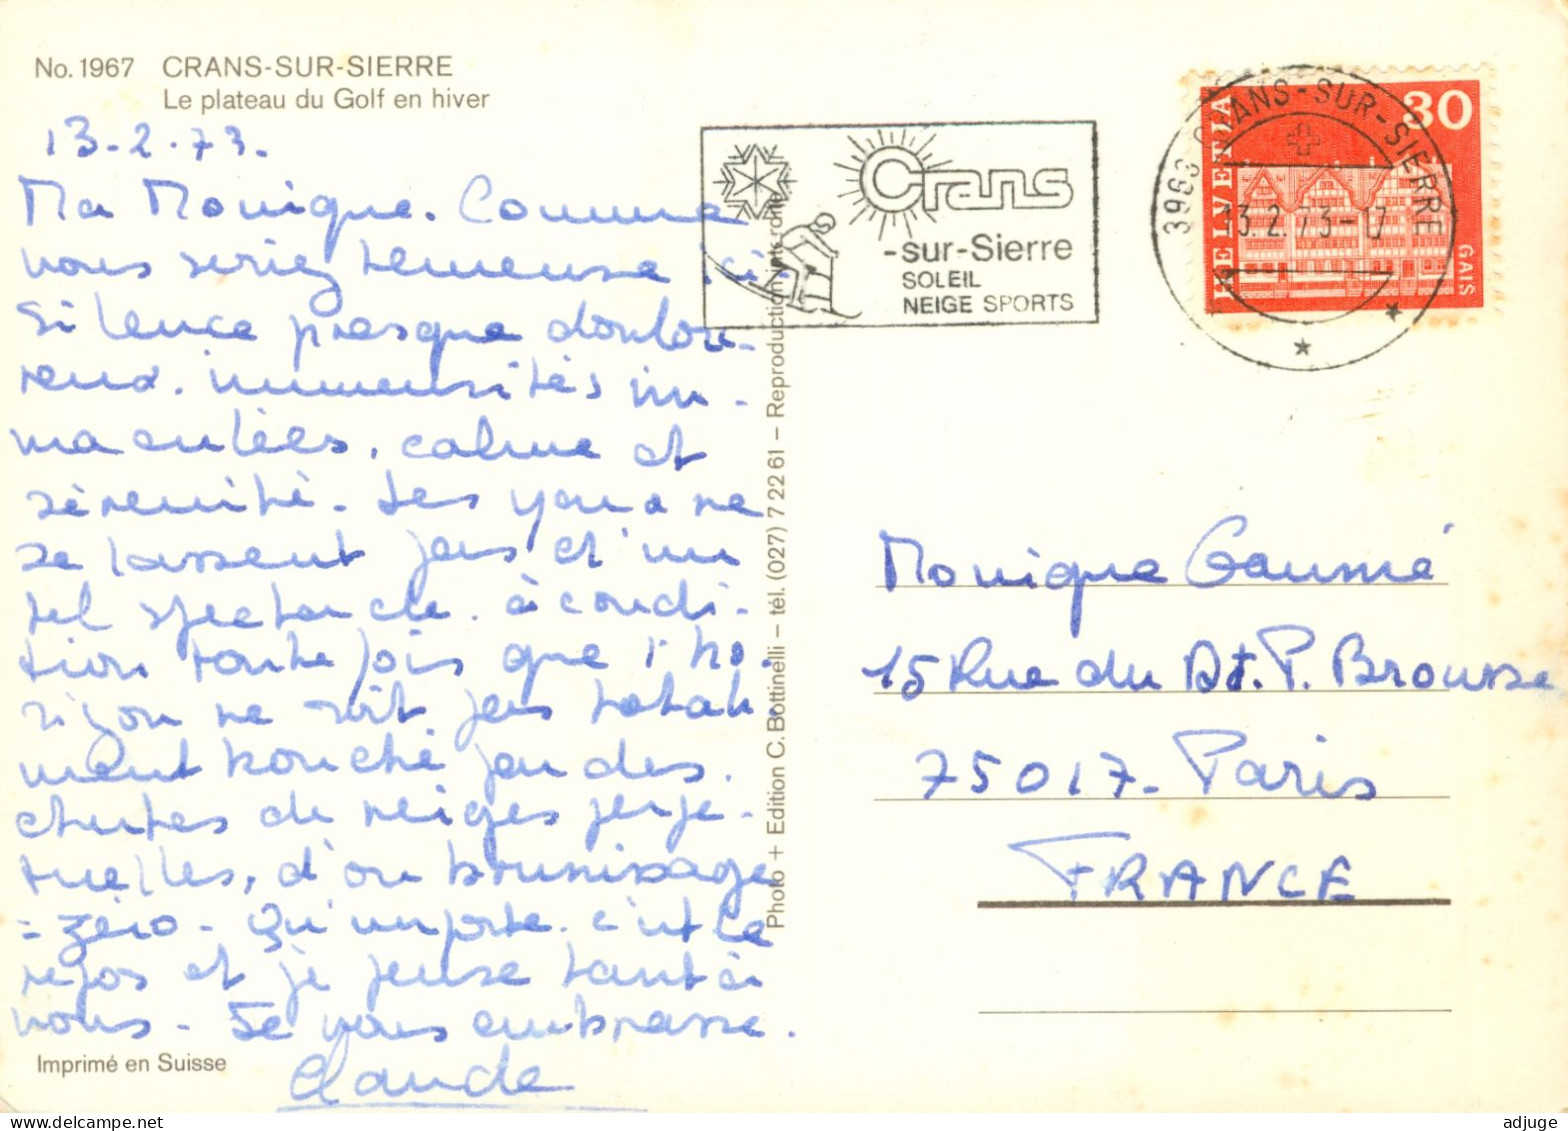 No. 1967 CRANS-SUR-SIERRE
Le plateau du Golf en hiver
13-2-73.
Ma Monique. Comme
vous seriez heureuse ici
Silence presque doulou-
reux. immensités im-
maculées, calme et
sérénité. Les yeux ne
se lassent pas d'un
tel spectacle. à condi-
tion toutefois que l'ho-
rizon ne soit pas totale-
ment bouché par des
chutes de neiges perpé-
tuelles, d'où brunissage
= zéro - Qu'importe. c'est le
repos et je pense tant à
vous - Je vous embrasse.
Claude
Imprimé en Suisse
Photo + Edition C. Bottinelli – tél. (027) 7 22 61 – Reproduction
Crans
-sur-Sierre
SOLEIL
NEIGE SPORTS
3963 CRANS-SUR-SIERRE
13.2.73-17
HELVETIA
30
GAIS
Monique Gaumé
15 Rue du Dt. P. Brousse
75017- Paris
FRANCE
adjuge